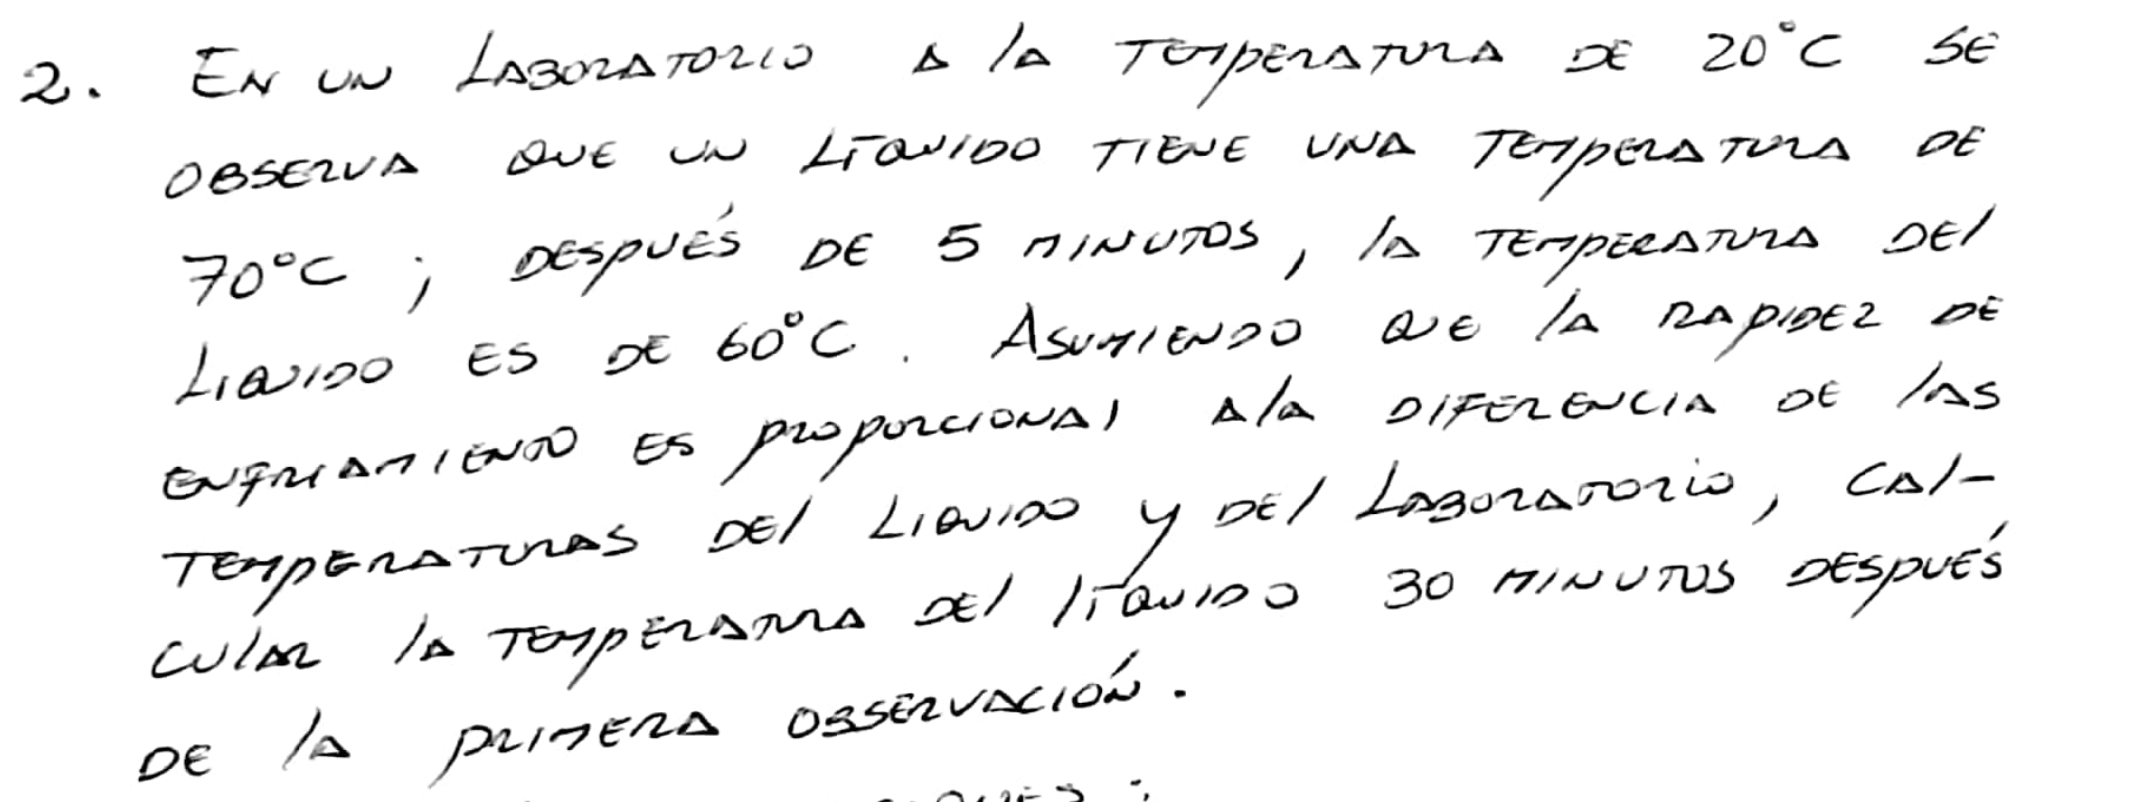 2. EN UN LABORATORIO A la TEMPERATURA DE 20°C SE
OBSERVA QUE UN LÍQUIDO TIENE UNA TEMPERATURA DE
70°C ; DESPUÉS DE 5 MINUTOS, la TEMPERATURA DEl
LIQUIDO ES DE 60°C. ASUMIENDO QUE la RAPIDEZ DE
ENFRIAMIENTO ES PROPORCIONAl A la DIFERENCIA DE lAS
TEMPERATURAS DEl LIQUIDO y DEl LABORATORIO, CAl-
CUlAR lA TEMPERATURA DEl lÍQUIDO 30 MINUTOS DESPUÉS
DE lA PRIMERA OBSERVACIÓN.